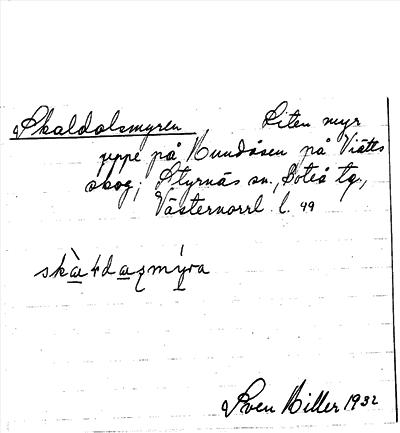 Skaldalsmyren Liten myr
uppe på Hundåsen på Viätts
skog, Styrnäs sn., Boteå tg.,
Västernorrl. l. 49
skàłdaꞩmýra
Sven Hiller 1932